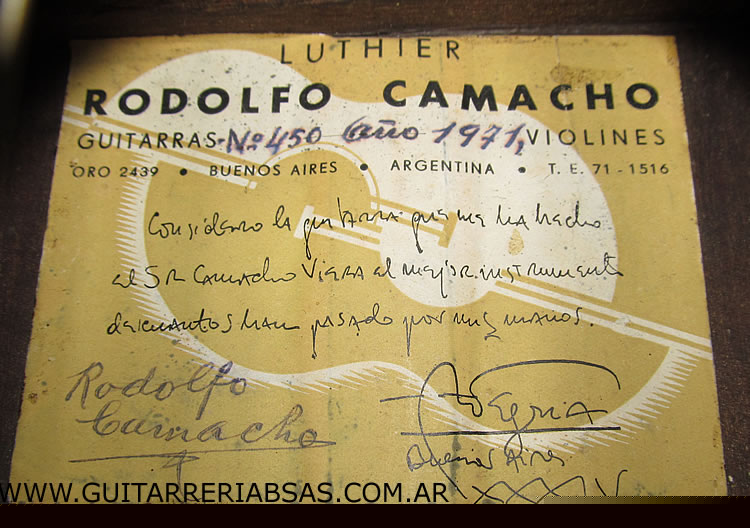 LUTHIER
RODOLFO CAMACHO
GUITARRAS-Nº 450 Año 1971, VIOLINES
ORO 2439 • BUENOS AIRES • ARGENTINA • T. E. 71 - 1516
Considero la guitarra que me ha hecho
el Sr Camacho Viera el mejor instrumento
de cuantos han pasado por mis manos.
Rodolfo
Camacho
Buenos Aires
XXXIV
WWW.GUITARRERIABSAS.COM.AR